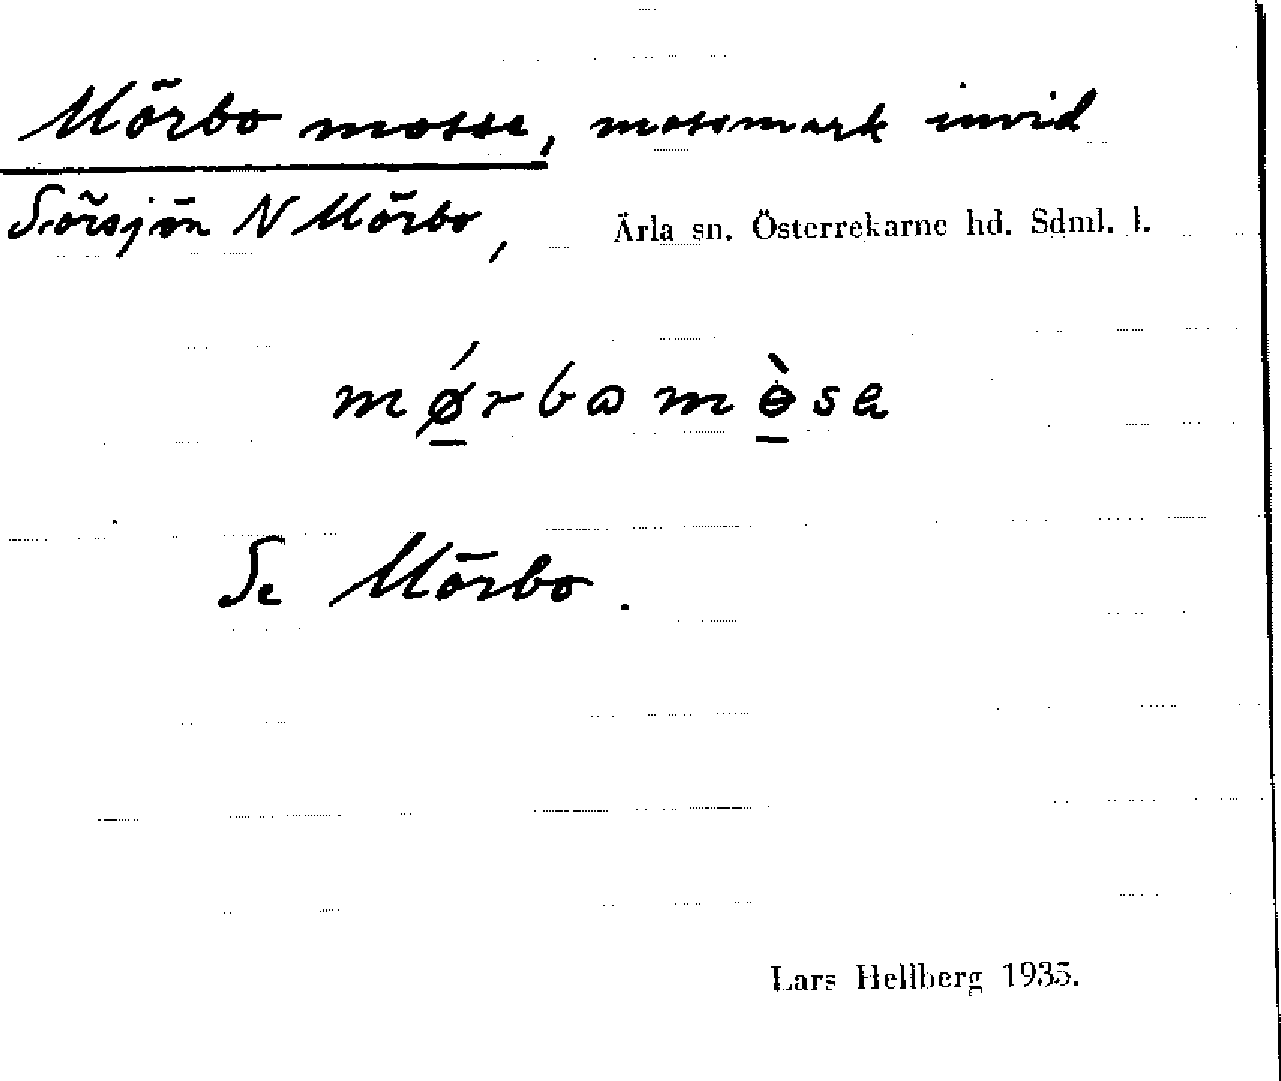 Mörbo mosse, mossmark invid
Sörsjön N Mörbo, Ärla sn. Österrekarne hd. Sdml. l.
mǿrbɷmɵ̀sa
Se Mörbo.
Lars Hellberg 1935.